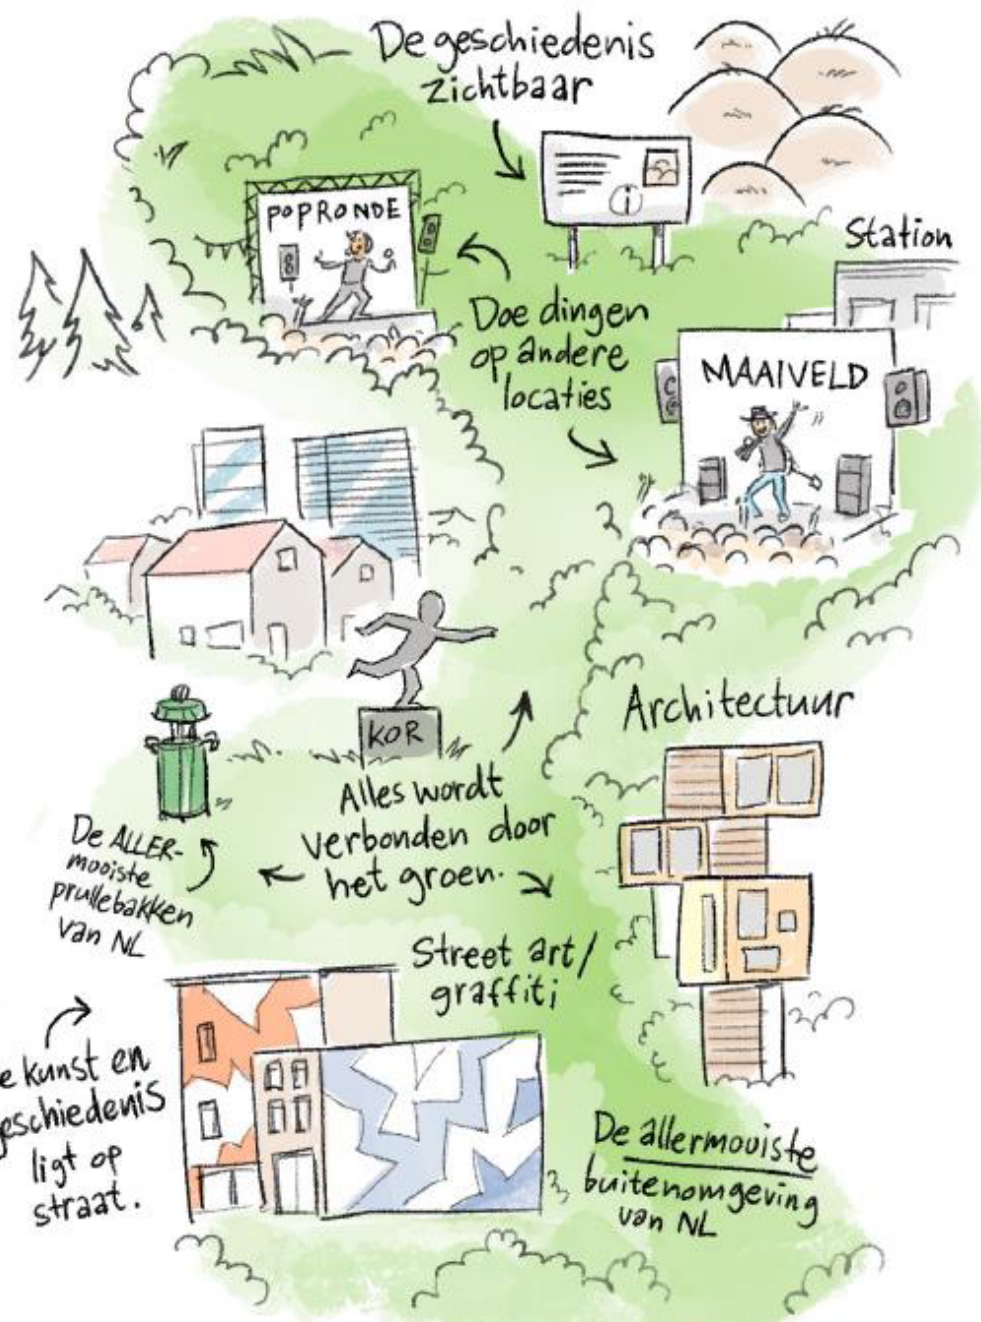 De geschiedenis
zichtbaar
POPRONDE
i
Station
Doe dingen
op andere
locaties
MAAIVELD
KOR
Architectuur
Alles wordt
verbonden door
het groen.
De ALLER-
mooiste
prullebakken
van NL
Street art/
graffiti
e kunst en
geschiedenis
ligt op
straat.
De allermooiste
buitenomgeving
van NL